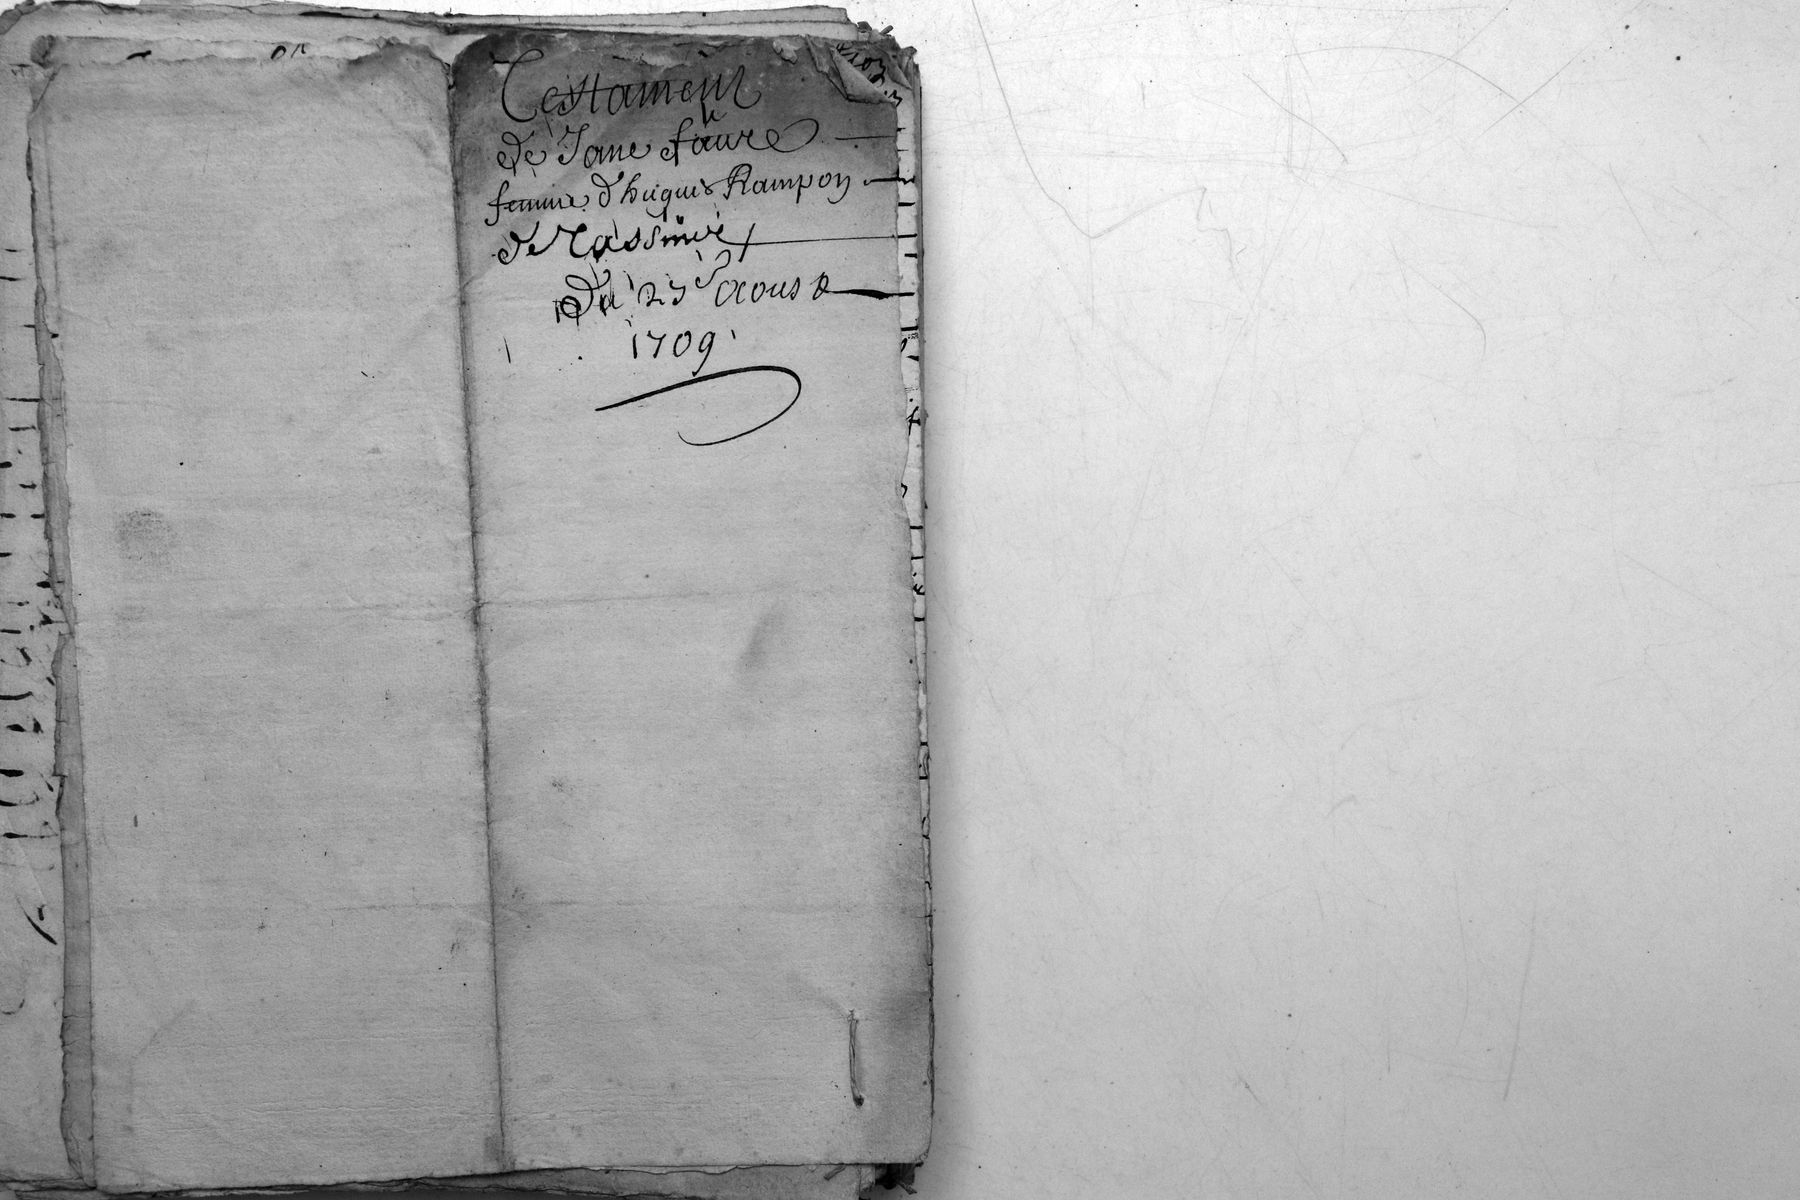 Testament
de Jane faure
femme d'hugues Rampon
de
du 23 d'aoust
1709